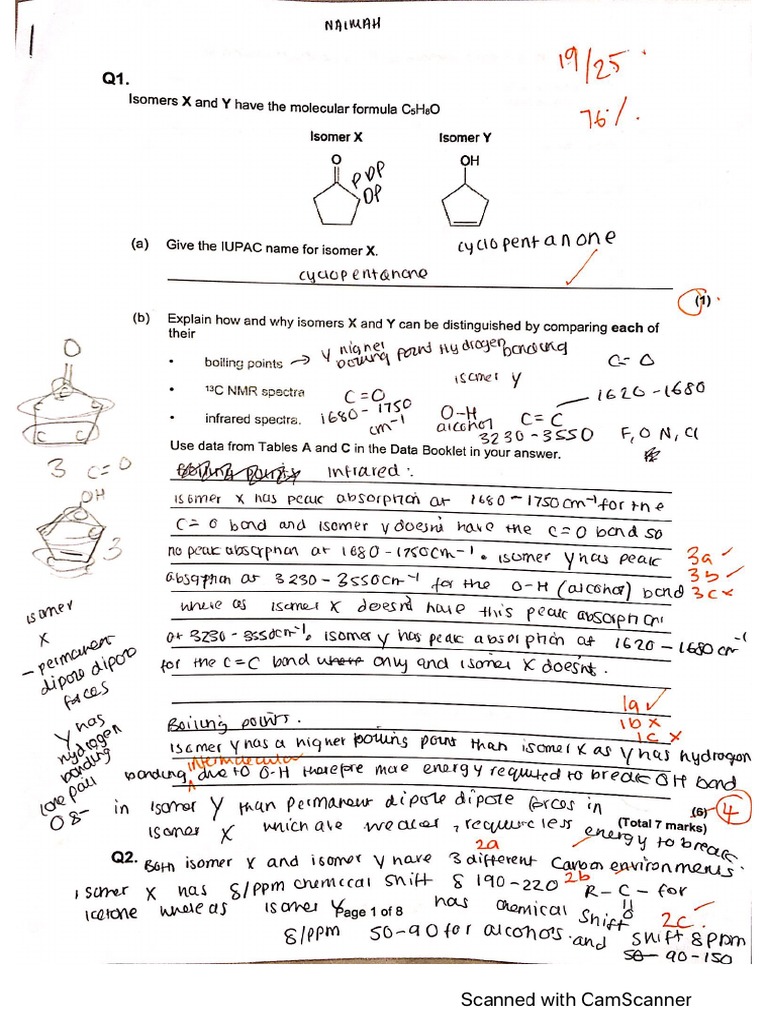 NAIMAH
1
19/25
76%.
Q1.
Isomers X and Y have the molecular formula C₅H₈O
Isomer X
Isomer Y
O
OH
PDP
DP
(a) Give the IUPAC name for isomer X.
cyclopentanone
cyclopentanone
(1)
(b) Explain how and why isomers X and Y can be distinguished by comparing each of
their
• boiling points → Y higher boiling point Hydrogen bonding
C=O
isomer Y
• ¹³C NMR spectra
C=O
1620-1680
• infrared spectra.
1680-1750 cm⁻¹
O-H alcohol
C=C
3230-3550
F, O N, Cl
Use data from Tables A and C in the Data Booklet in your answer.
O
C C
3 C=O
OH
3
Boiling points Infrared:
isomer X has peak absorption at 1680-1750cm⁻¹ for the
C=O bond and isomer Y doesnt have the C=O bond so
no peak absorption at 1680-1750cm⁻¹. isomer Y has peak
3a ✓
3b ✓
absorption at 3230-3550cm⁻¹ for the O-H (alcohol) bond
3c x
where as isomer X doesnt have this peak absorption
at 3230-3550cm⁻¹. isomer Y has peak absorption at 1620-1680cm⁻¹
for the C=C bond where only and isomer X doesnt.
isomer
X
- permanent
dipole dipole
forces
Y has
hydrogen
bonding
lone pair
O δ-
1a ✓
1b x
1c x
Boiling points.
Isomer Y has a higher boiling point than isomer X as Y has hydrogen
intermolecular
bonding due to O-H therefore more energy required to break OH bond
in isomer Y than permanent dipole dipole forces in
(6)
4
isomer X which are weaker, require less energy to break
(Total 7 marks)
2a
Q2. Both isomer X and isomer Y have 3 different carbon environments.
isomer X has δ/ppm chemical shift δ 190-220 2b R-C- for
O
ketone where as isomer Y has chemical shift
Page 1 of 8
2c
δ/ppm 50-90 for alcohols and shift δ ppm
50- 90-150
Scanned with CamScanner